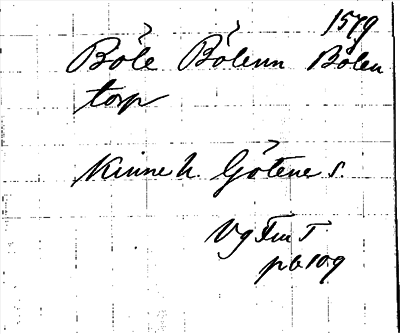 1579
Böle Bölenn Bölen
torp
Kinne h. Götene s.
Vg Fm T
p 6 109